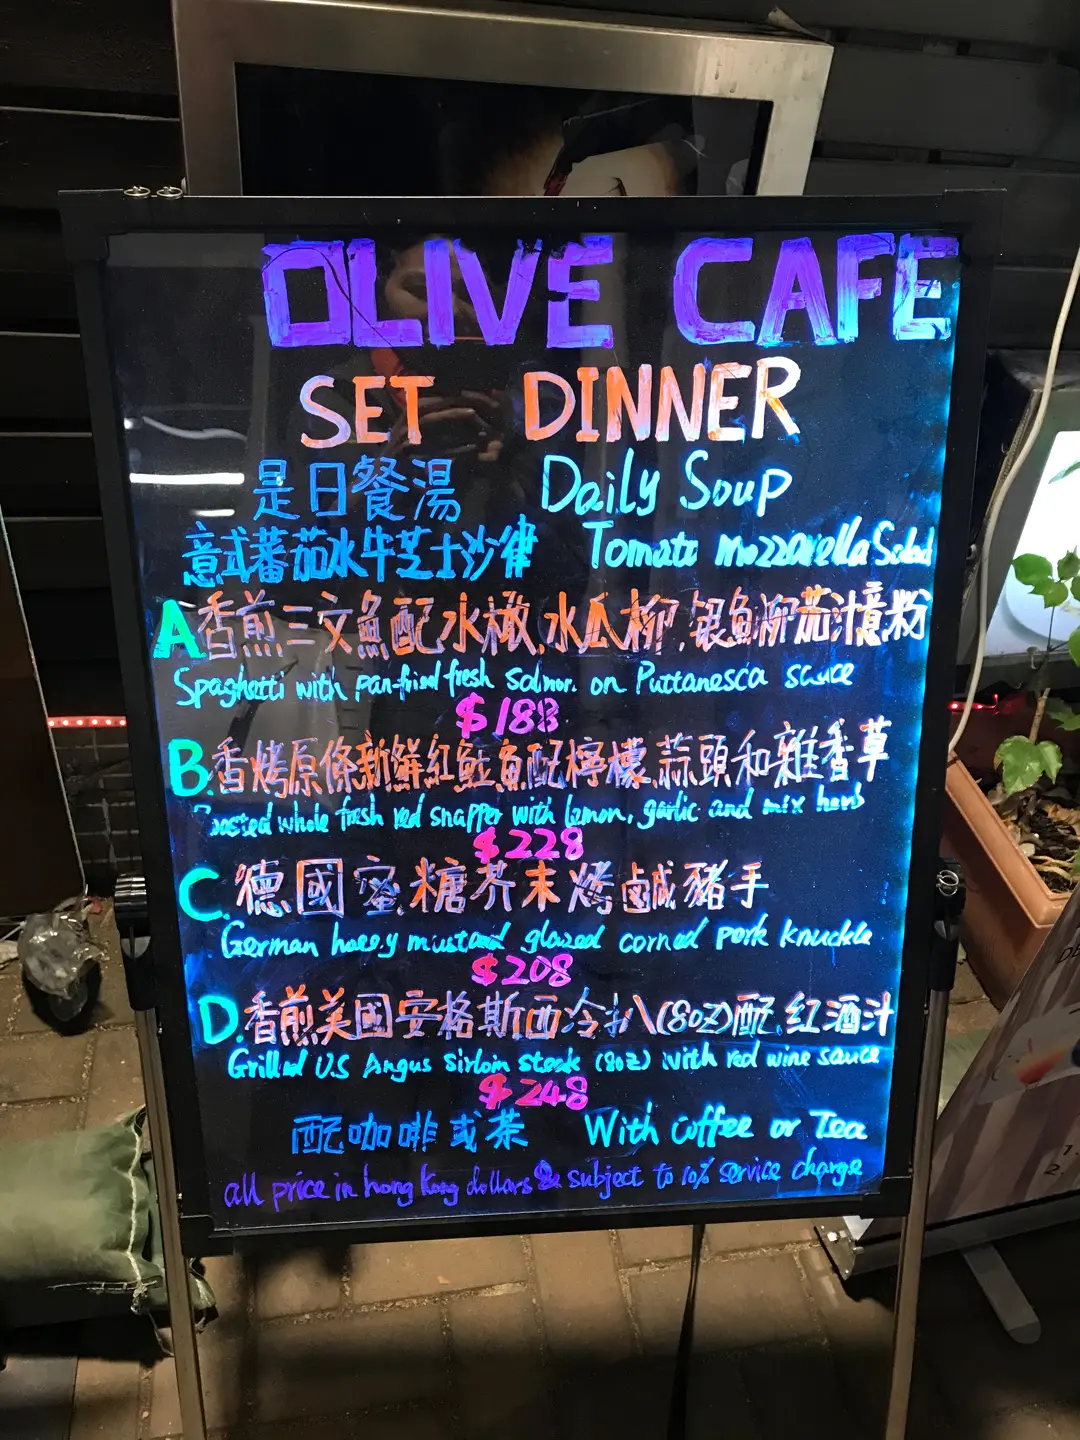 OLIVE CAFE
SET DINNER
是日餐湯 Daily Soup
意式蕃茄水牛芝士沙律 Tomato mozzarella Salad
A 香煎三文魚配水欖.水瓜柳.銀魚柳茄汁意粉
Spaghetti with pan-fried fresh salmon on Puttanesca sauce
$188
B.香烤原條新鮮紅鮏魚配檸檬.蒜頭和雜香草
Roasted whole fresh red snapper with lemon, garlic and mix herb
$228
C.德國蜜糖芥末烤鹹豬手
German honey mustard glazed corned pork knuckle
$208
D.香煎美國安格斯西冷扒(8oz)配.紅酒汁
Grilled U.S Angus sirloin steak (8oz) with red wine sauce
$248
配咖啡或茶 With Coffee or Tea
all price in hong kong dollars & subject to 10% service charge